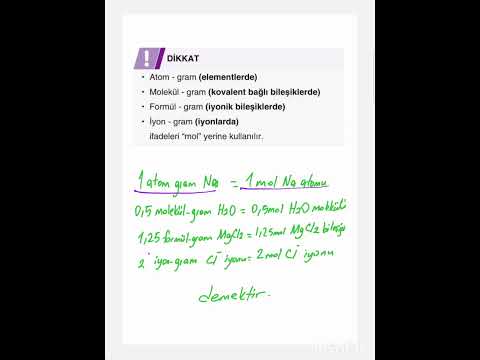 ! DİKKAT
• Atom - gram (elementlerde)
• Molekül - gram (kovalent bağlı bileşiklerde)
• Formül - gram (iyonik bileşiklerde)
• İyon - gram (iyonlarda)
ifadeleri “mol” yerine kullanılır.
1 atom gram Na = 1 mol Na atomu
0,5 molekül-gram H2O = 0,5 mol H2O molekülü
1,25 formül-gram MgCl2 = 1,25 mol MgCl2 bileşiği
2 iyon-gram Cl⁻ iyonu = 2 mol Cl⁻ iyonu
demektir.